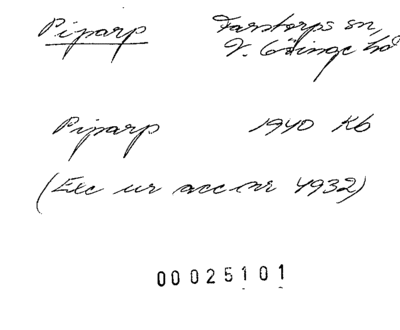 Piparp Farstorps sn,
V. Göinge hd
Piparp 1940 Kb
(Exc ur acc nr 4932)
00025101